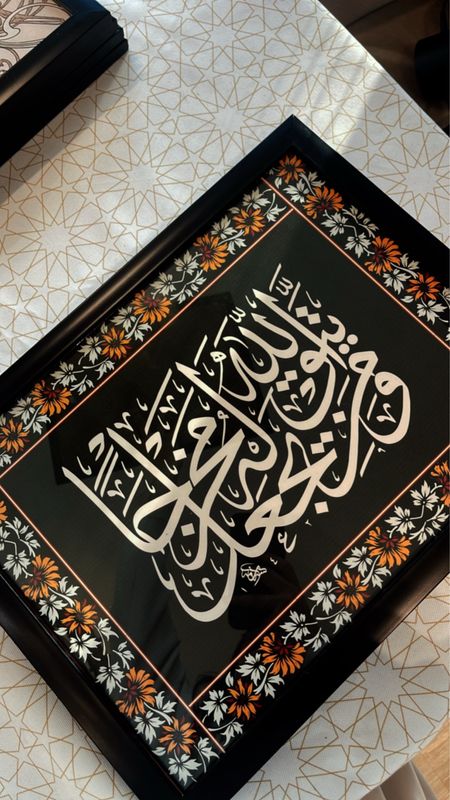 ومن يتق الله يجعل له مخرجا